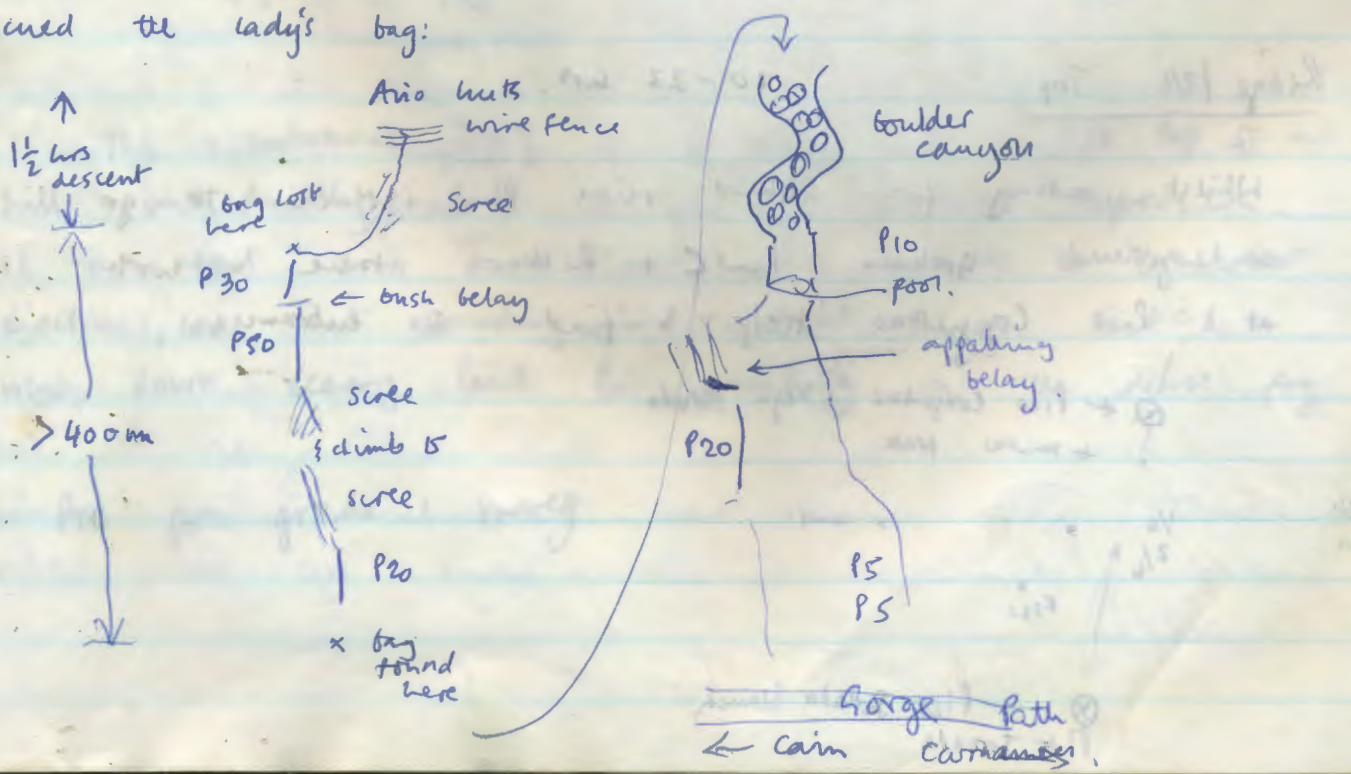 the lady's bag:
1½ hrs
descent
> 400m
Ario huts
wire fence
scree
bag lost
here
P30
← bush belay
P50
scree
climb 15
scree
P20
x bag
found
here
boulder
canyon
P10
pool.
appalling
belay.
P20
P5
P5
Gorge Path
← Cain